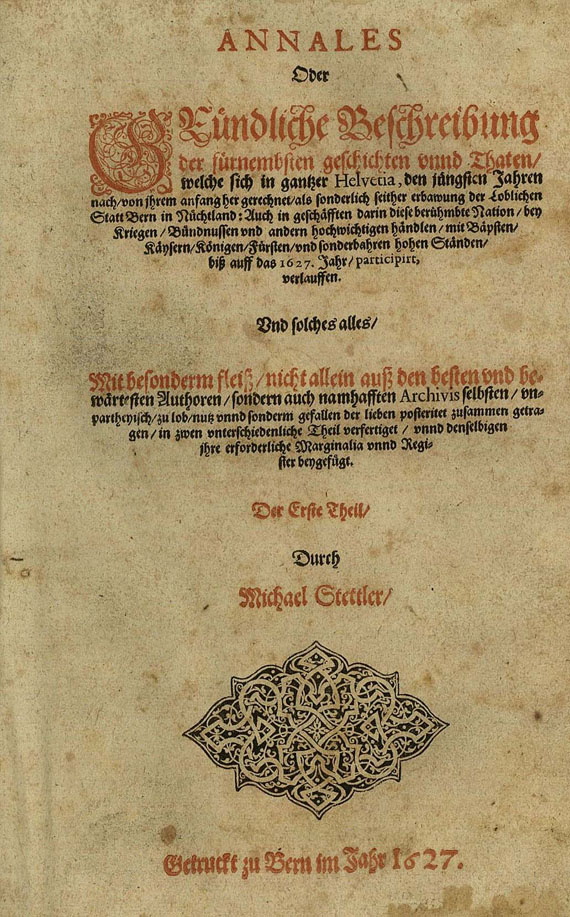 ANNALES
Oder
GRündliche Beschreibung
der fürnembsten geschichten vnnd Thaten/
welche sich in gantzer Helvetia, den jüngsten Jahren
nach/von jhrem anfang her gerechnet/als sonderlich seither erbawung der Loblichen
Statt Bern in Nüchtland: Auch in geschäfften darin diese berühmbte Nation/bey
Kriegen/Bündnussen vnd andern hochwichtigen händlen/mit Bäpsten/
Käysern/Königen/Fürsten/vnd sonderbahren hohen Ständen/
biß auff das 1627. Jahr/participirt,
verlauffen.
Vnd solches alles/
Mit besonderm fleiß/nicht allein auß den besten vnd be-
wärt-sten Authoren/sondern auch namhafften Archivis selbsten/vn-
partheyisch/zu lob/nutz vnnd sonderm gefallen der lieben posteritet zusammen getra-
gen/in zwen vnterschiedenliche Theil verfertiget/vnnd denselbigen
jhre erforderliche Marginalia vnnd Regi-
ster beygefügt.
Der Erste Theil/
Durch
Michael Stettler/
Getruckt zu Bern im Jahr 1627.